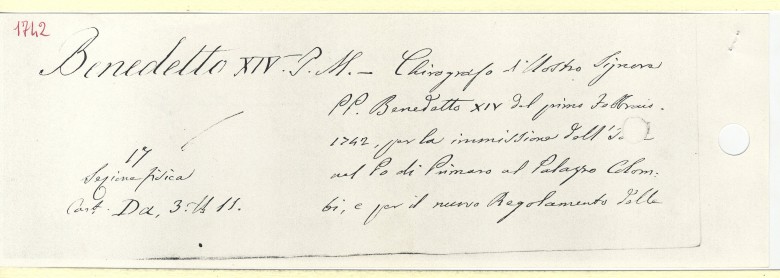 1742
Benedetto XIV. P. M. — Chirografo di Nostro Signore
PP. Benedetto XIV del primo Febbraio
1742, per la immissione dell'
nel Po di Primaro al Palazzo Clom-
bi, e per il nuovo Regolamento delle
17
Sezione fisica
Cart. Da, 3. 11.